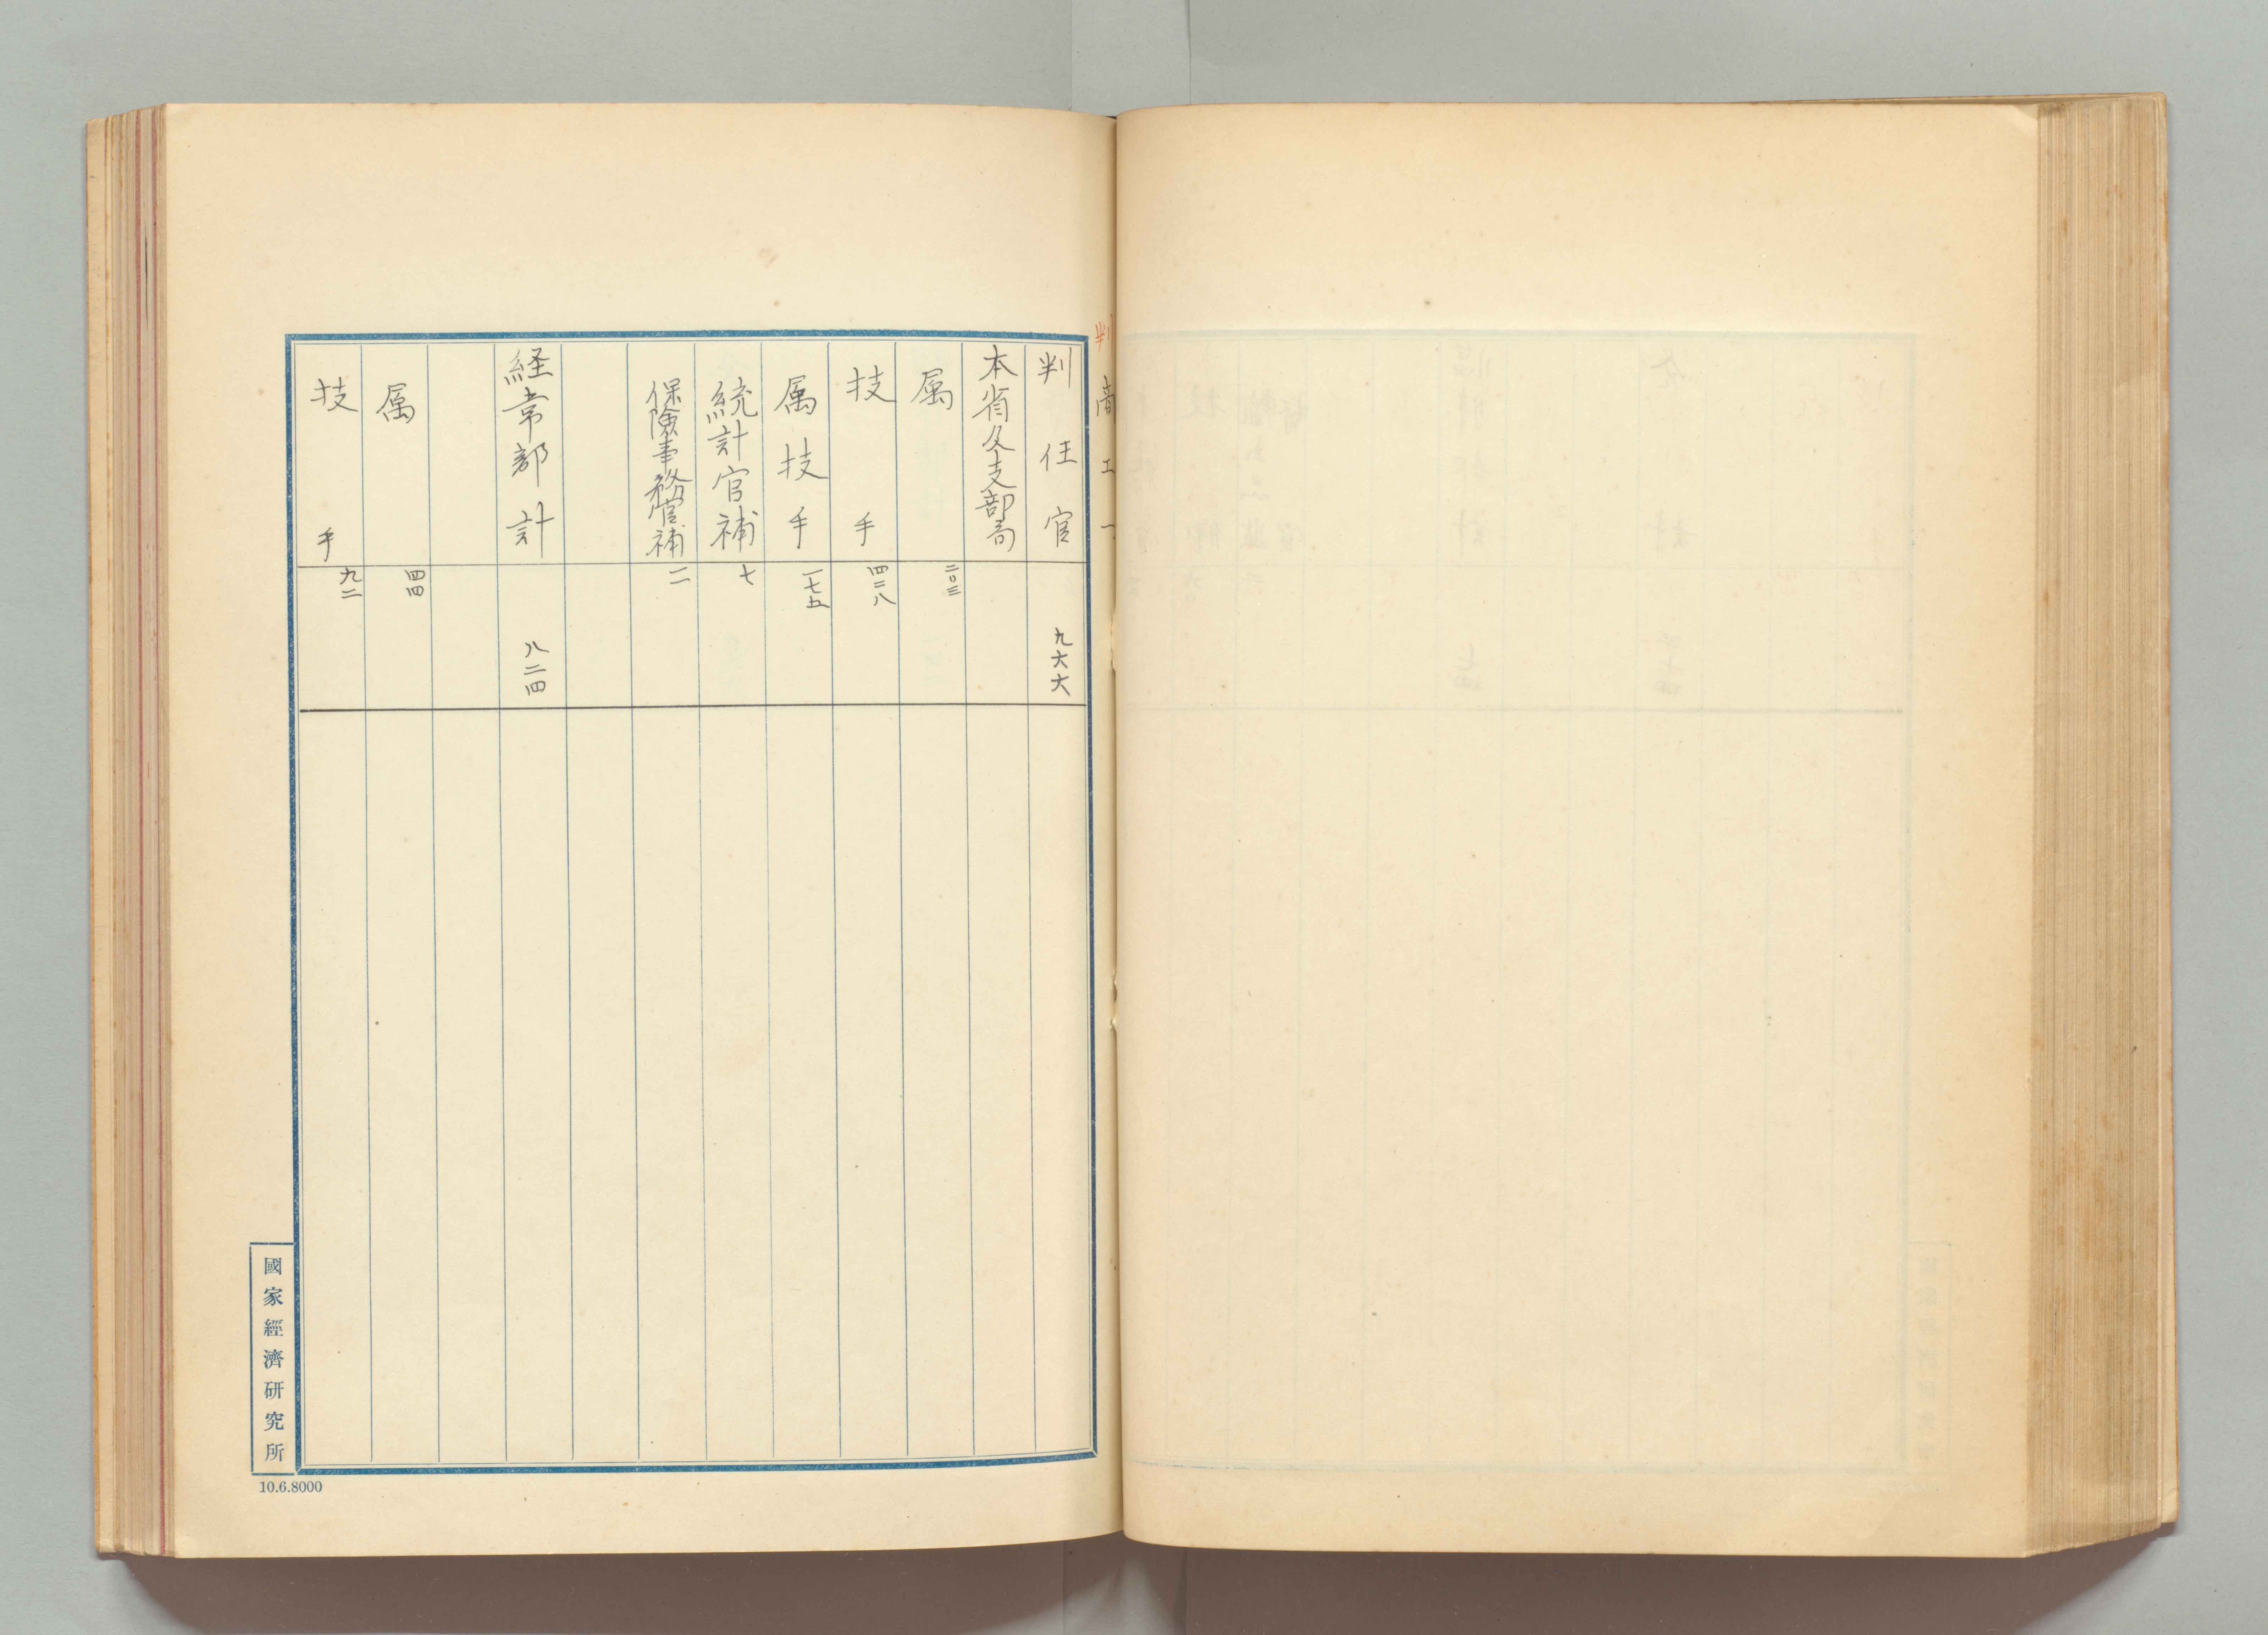 判
商工一
判任官 九六六
本省及支部局
属 二〇三
技手 四二八
属技手 一七五
統計官補 七
保險事務官補 一一
経常部計 八二四
属 四四
技手 九二
國家經濟研究所
10.6.8000